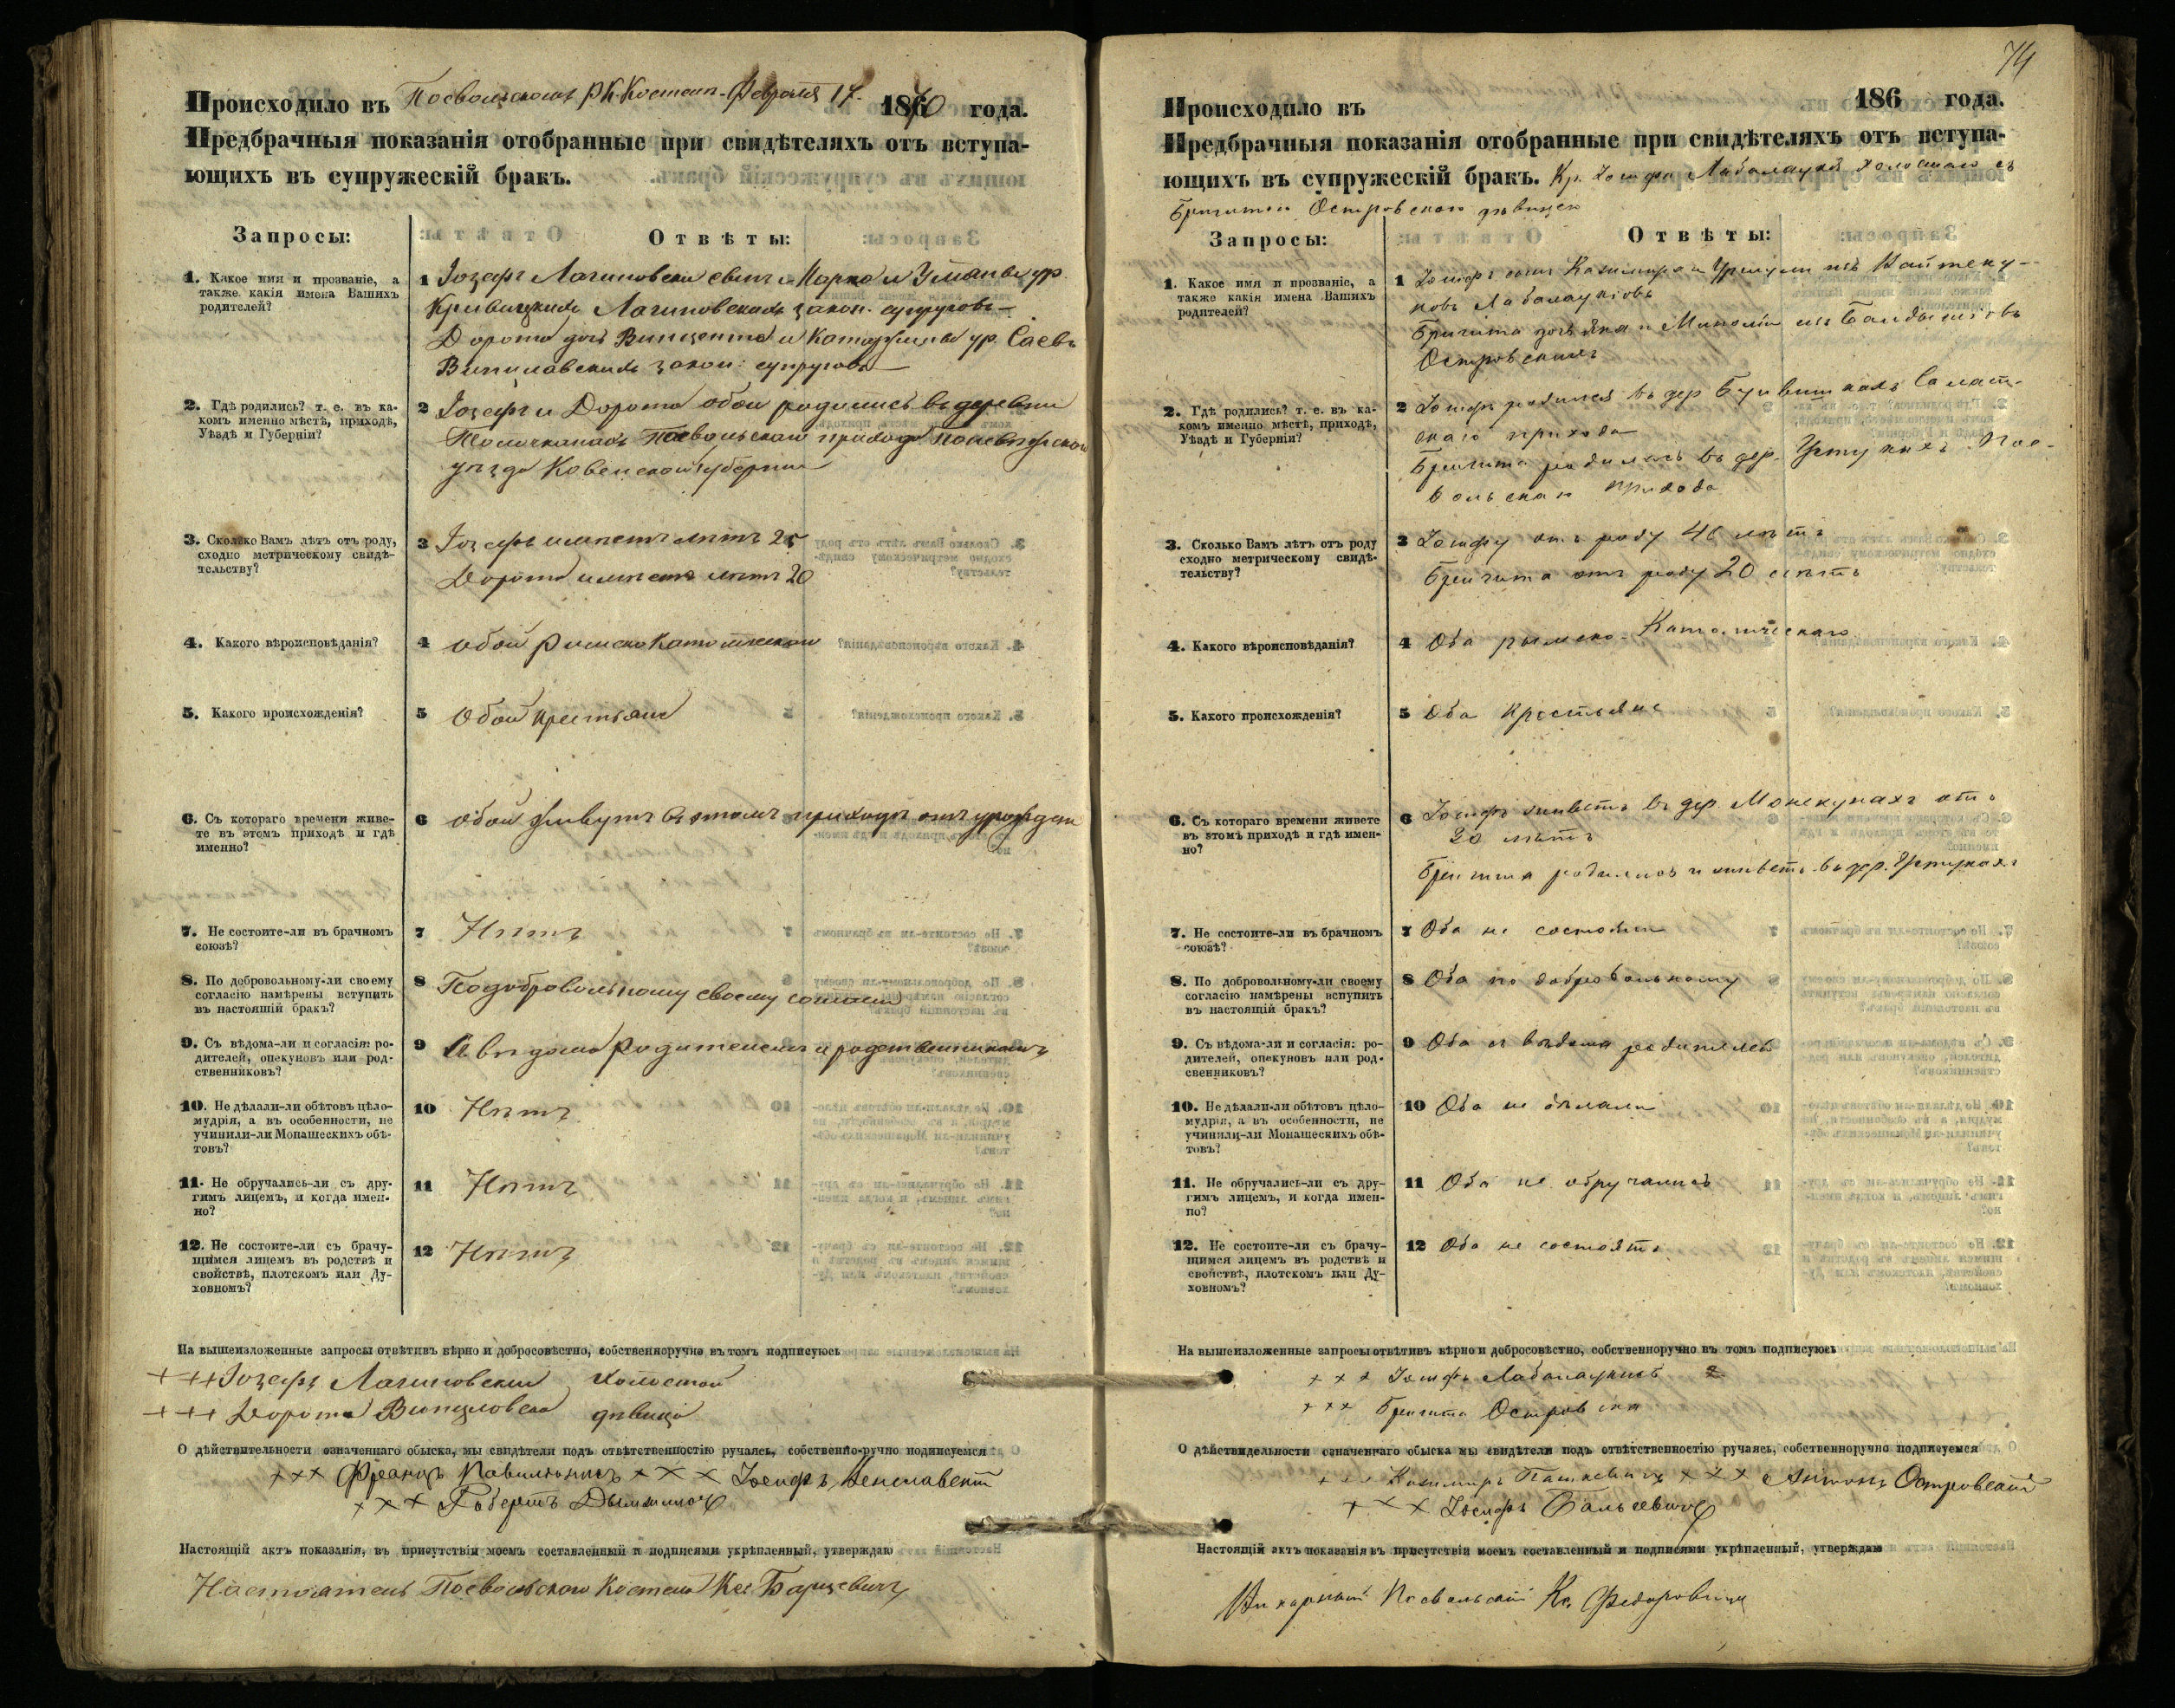 Происходило въ Посвольскомъ Р.К. Костел. Февраля 17. 1870 года.
Предбрачныя показанія отобранные при свидѣтеляхъ отъ вступа-
ющихъ въ супружескій бракъ.
Запросы: Отвѣты:
1. Какое имя и прозваніе, а
также какія имена Вашихъ
родителей?
1 Іозафъ сынъ Марка и ур.
законн. супруговъ
Дорота дочь Винцента и Катаржины ур.
закон: супруговъ
2. Гдѣ родились? т. е. въ ка-
комъ именно мѣстѣ, приходѣ,
Уѣздѣ и Губерніи?
2 Іозафъ и Дорота обои родились въ деревни
Посвольскаго прихода Поневѣжскаго
уѣзда Ковенской губерніи
3. Сколько Вамъ лѣтъ отъ роду,
сходно метрическому свидѣ-
тельству?
3 Іозафъ имѣетъ лѣтъ 25
Дорота имѣетъ лѣтъ 20
4. Какого вѣроисповѣданія?
4 Обои Римско Католическаго
5. Какого происхожденія?
5 Обои крестьяне
6. Съ котораго времени живе-
те въ этомъ приходѣ и гдѣ
именно?
6 Обои живутъ въ этомъ приходѣ отъ
7. Не состоите-ли въ брачномъ
союзѣ?
7 Нѣтъ
8. По добровольному-ли своему
согласію намѣрены вступить
въ настоящій бракъ?
8 По добровольному своему согласію
9. Съ вѣдома-ли и согласія: ро-
дителей, опекуновъ или род-
ственниковъ?
9 Съ вѣдома родителей и
10. Не дѣлали-ли обѣтовъ цѣло-
мудрія, а въ особенности, не
учинили-ли Монашескихъ обѣ-
товъ?
10 Нѣтъ
11. Не обручались-ли съ дру-
гимъ лицемъ, и когда имен-
но?
11 Нѣтъ
12. Не состоите-ли съ брачу-
щимся лицемъ въ родствѣ и
свойствѣ, плотскомъ или Ду-
ховномъ?
12 Нѣтъ
На вышеизложенные запросы отвѣтивъ вѣрно и добросовѣстно, собственноручно въ томъ подписуюсь
+++ Іозафъ холостой
+++ Дорота дѣвица
О дѣйствительности означеннаго обыска, мы свидѣтели подъ отвѣтственностію ручаясь, собственно-ручно подписуемся
+++ Францъ +++ Іосифъ
+++ Робертъ
Настоящій актъ показанія, въ присутствіи моемъ составленный и подписями укрѣпленный, утверждаю
Настоятель Посвольскаго Костела Кс.
74
Происходило въ 186 года.
Предбрачныя показанія отобранные при свидѣтеляхъ отъ вступа-
ющихъ въ супружескій бракъ. Кр. холостаго съ
Островскою дѣвицею
Запросы: Отвѣты:
1. Какое имя и прозваніе, а
также какія имена Вашихъ
родителей?
1 Іосифъ сынъ Казимира и Уршули изъ
Бригита дочь Яна и изъ
Островскихъ
2. Гдѣ родились? т. е. въ ка-
комъ именно мѣстѣ, приходѣ,
Уѣздѣ и Губерніи?
2 Іосифъ родился въ дер.
скаго прихода
Бригита родилась въ дер. Пос-
вольскаго прихода
3. Сколько Вамъ лѣтъ отъ роду
сходно метрическому свидѣ-
тельству?
3 Іосифу отъ роду 46 лѣтъ
Бригита отъ роду 20 лѣтъ
4. Какого вѣроисповѣданія?
4 Оба рымско-Католическаго
5. Какого происхожденія?
5 Оба крестьяне
6. Съ котораго времени живете
въ этомъ приходѣ и гдѣ имен-
но?
6 Іосифъ живетъ въ дер. отъ
20 лѣтъ
Бригита родилась и живетъ въ дер.
7. Не состоите-ли въ брачномъ
союзѣ?
7 Оба не состояли
8. По добровольному-ли своему
согласію намѣрены вспупить
въ настоящій бракъ?
8 Оба по добровольному
9. Съ вѣдома-ли и согласія: ро-
дителей, опекуновъ или род-
свенниковъ?
9 Оба съ вѣдома родителей
10. Не дѣлали-ли обѣтовъ цѣло-
мудрія, а въ особенности, не
учинили-ли Монашескихъ обѣ-
товъ?
10 Оба не дѣлали
11. Не обручались-ли съ дру-
гимъ лицемъ, и когда имен-
но?
11 Оба не обручались
12. Не состоите-ли съ брачу-
щимся лицемъ въ родствѣ и
свойствѣ, плотскомъ или Ду-
ховномъ?
12 Оба не состоятъ
На вышеизложенные запросы отвѣтивъ вѣрно и добросовѣстно, собственноручно въ томъ подписуюсь
+++ Іосифъ
+++ Бригита Островска
О дѣйствидельности означеннаго обыска мы свидѣтели подъ отвѣтственностію ручаясь, собственноручно подписуемся
+++ Казимиръ Пашкевичъ +++ Антонъ Островскій
+++ Іосифъ Бальцевичъ
Настоящій актъ показанія въ присутствіи моемъ составленный и подписями укрѣпленный, утверждаю
Викарный Посвольскій Кс. Федоровичъ